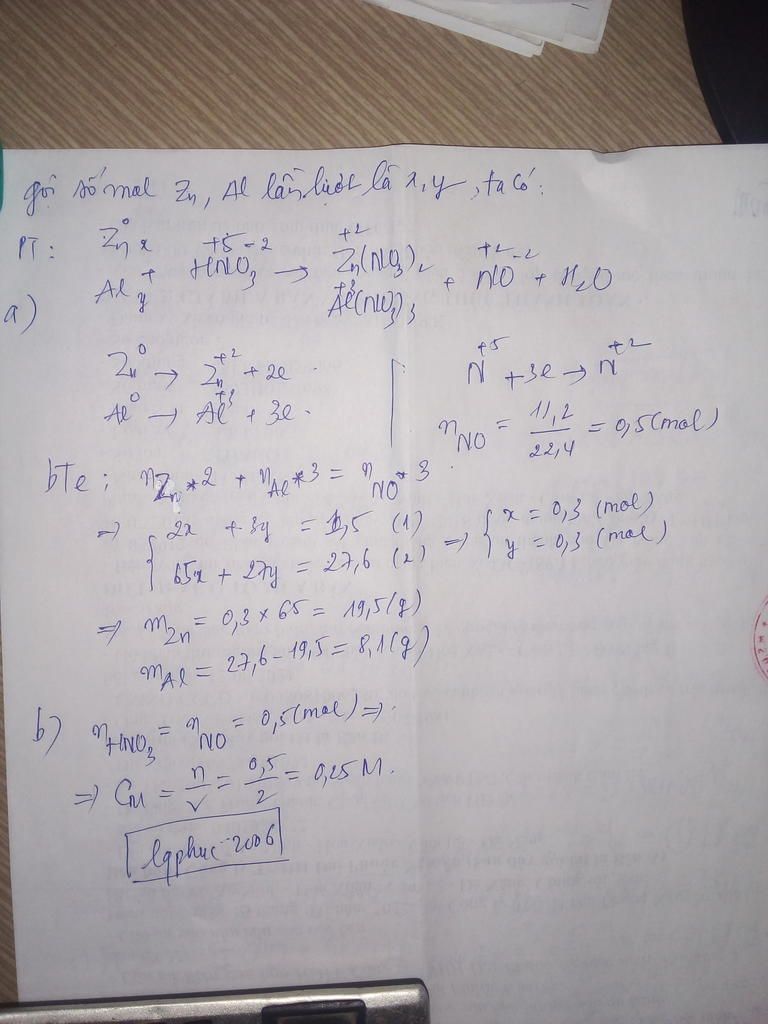 gọi số mol Zn, Al lần lượt là x, y, ta có:
PT: Zn⁰ x + HN⁺⁵O₃⁻² → Zn⁺²(NO₃)₂ + N⁺²O⁻² + H₂O
Al y Al⁺³(NO₃)₃
a)
Zn⁰ → Zn⁺² + 2e
Al⁰ → Al⁺³ + 3e
N⁺⁵ + 3e → N⁺²
nNO = 11,2/22,4 = 0,5 (mol)
bTe: nZn*2 + nAl*3 = nNO*3
⇒ { 2x + 3y = 1,5 (1)
65x + 27y = 27,6 (2) ⇒ { x = 0,3 (mol)
y = 0,3 (mol)
⇒ mZn = 0,3 × 65 = 19,5 (g)
mAl = 27,6 - 19,5 = 8,1 (g)
b) nHNO₃ = nNO = 0,5 (mol) ⇒
⇒ CM = n/V = 0,5/2 = 0,25 M.
lqphuc-2006